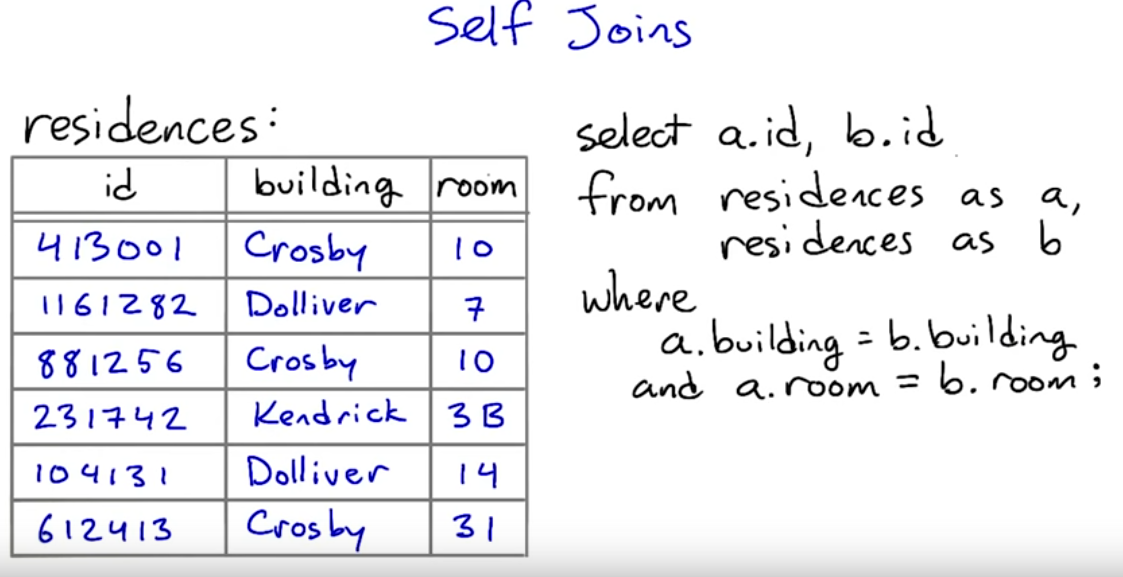 Self Joins
residences:
id building room
413001 Crosby 10
1161282 Dolliver 7
881256 Crosby 10
231742 Kendrick 3B
104131 Dolliver 14
612413 Crosby 31
select a.id, b.id
from residences as a,
residences as b
where
a.building = b.building
and a.room = b.room;